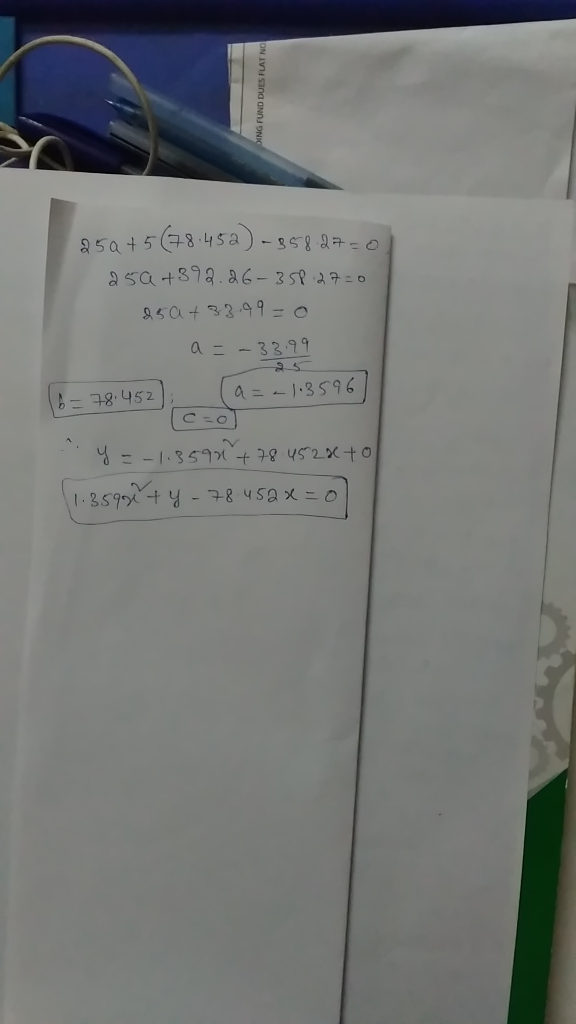 DING FUND DUES FLAT NO.
25a + 5(78.452) - 358.27 = 0
25a + 392.26 - 358.27 = 0
25a + 33.99 = 0
a = - 33.99
25
b = 78.452 ; a = - 1.3596
c = 0
∴ y = -1.359x² + 78.452x + 0
1.359x² + y - 78.452x = 0